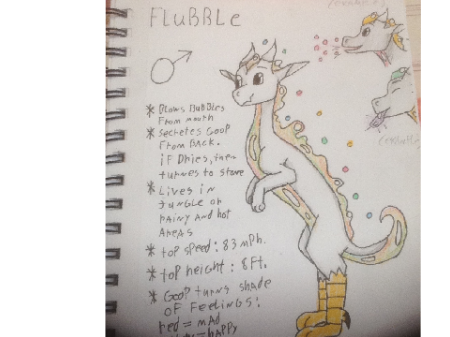 FLUBBLE
* Blows Bubbles
From mouth
* Secretes Goop
From BACK.
iF DRies, then
turnes to stone
* Lives in
Jungle or
Rainy and hot
Areas
* top speed: 83 mph.
* top height: 8 Ft.
* Goop turns shade
OF Feelings:
red = mad
= happy